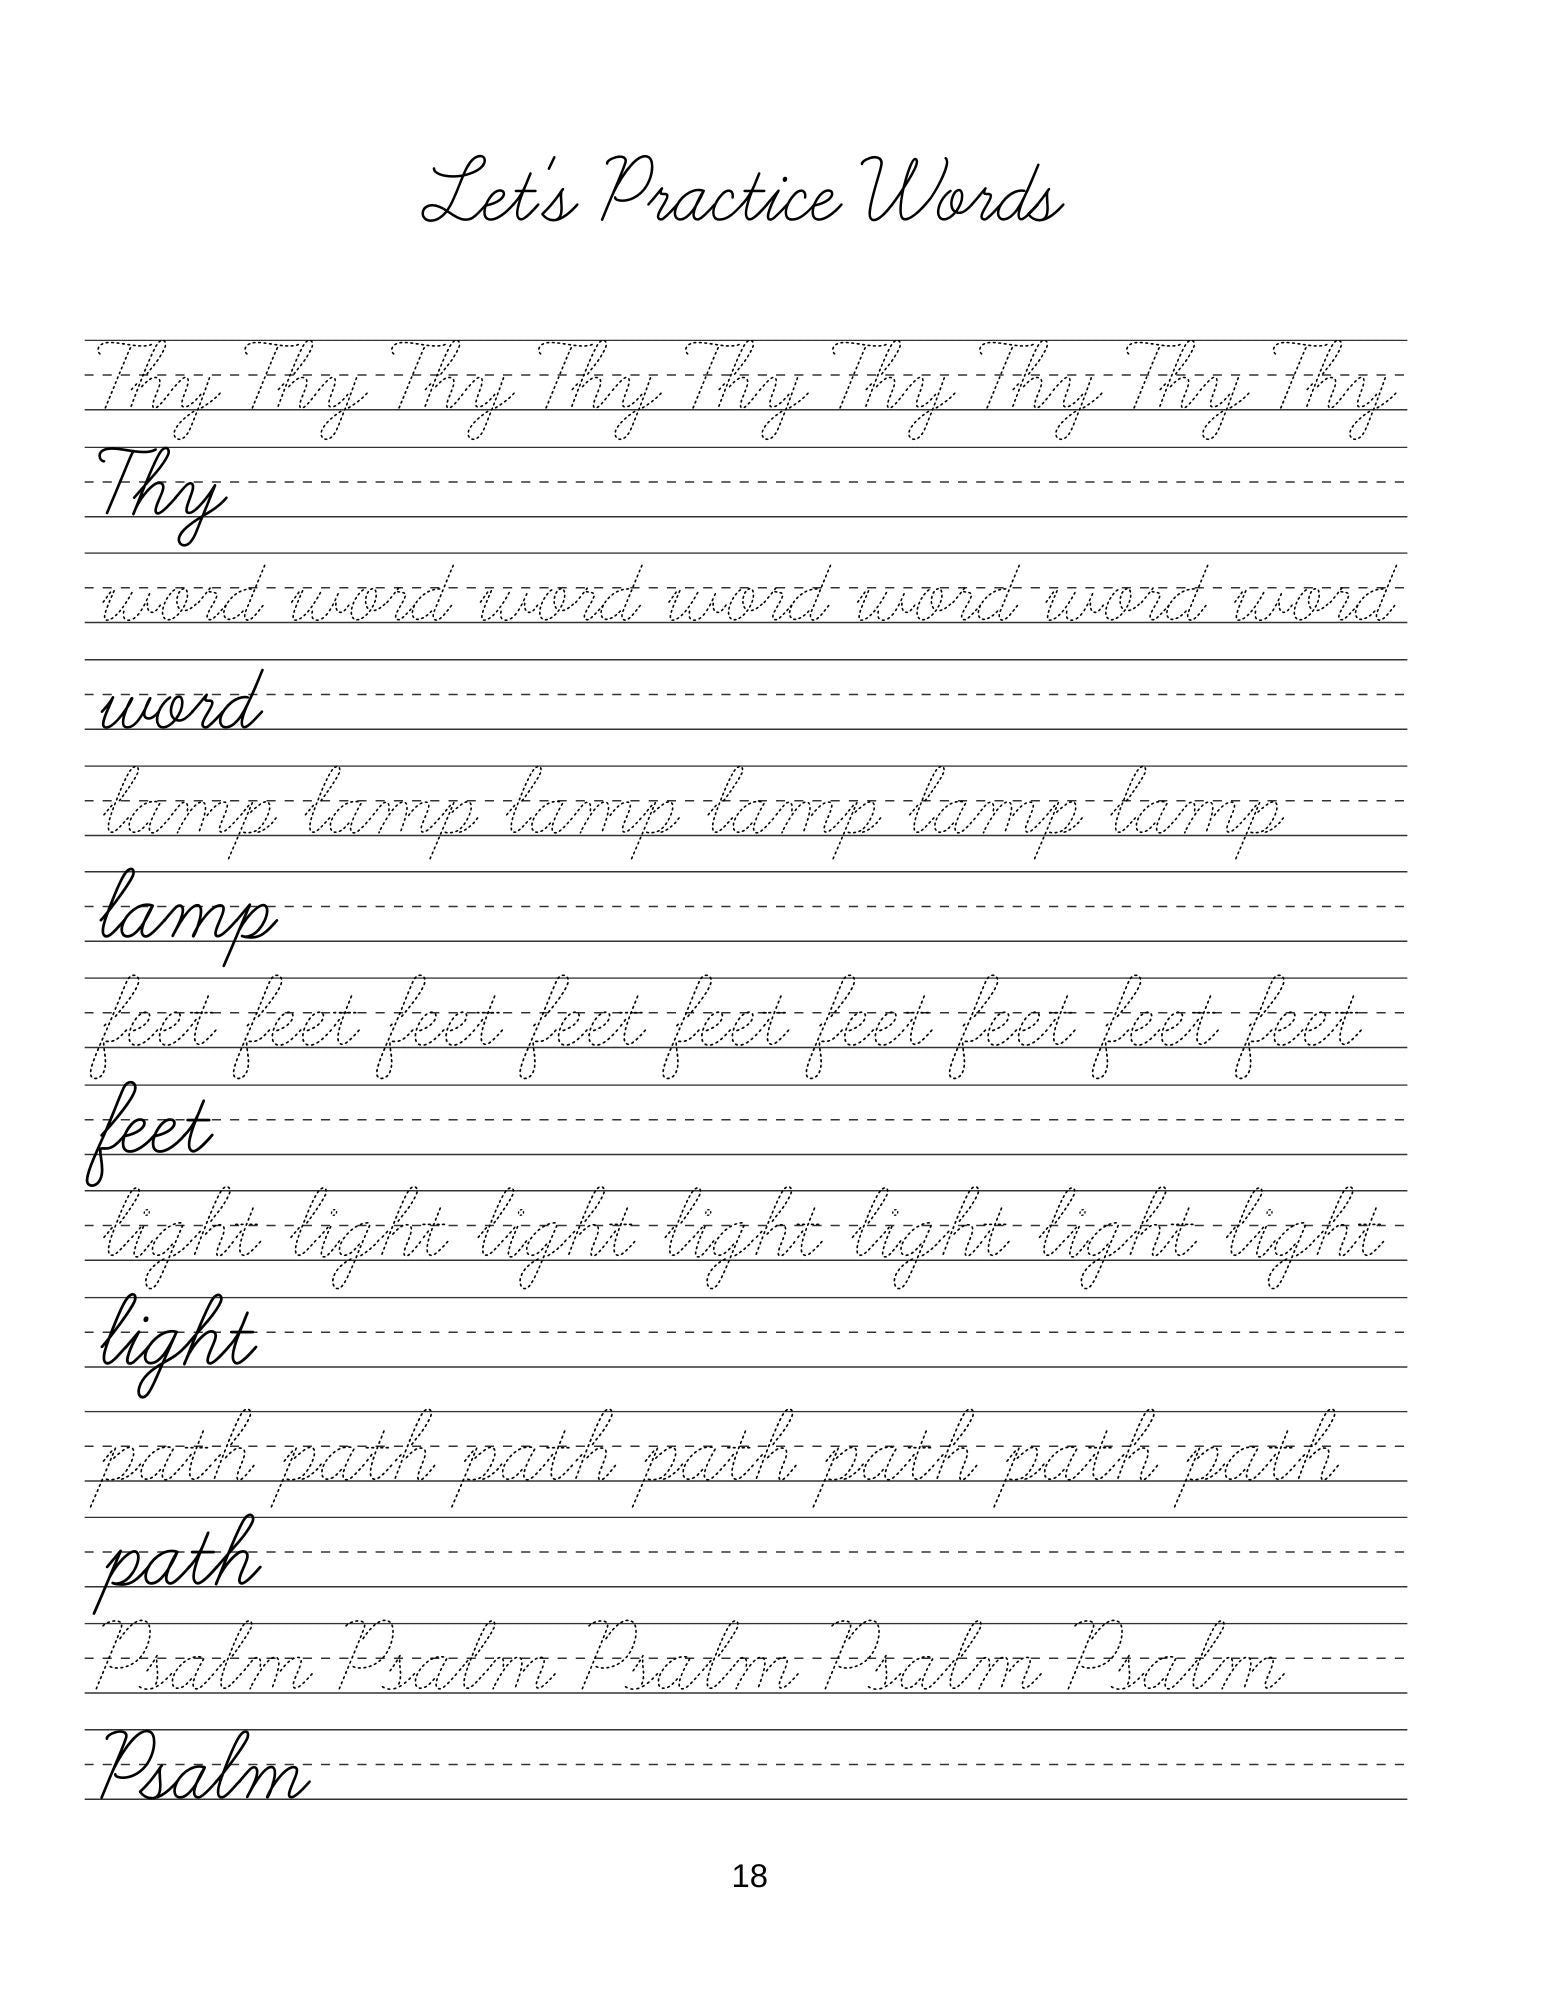 Let's Practice Words
Thy Thy Thy Thy Thy Thy Thy Thy Thy
Thy
word word word word word word word
word
lamp lamp lamp lamp lamp lamp
lamp
feet feet feet feet feet feet feet feet feet
feet
light light light light light light light
light
path path path path path path path
path
Psalm Psalm Psalm Psalm Psalm
Psalm
18